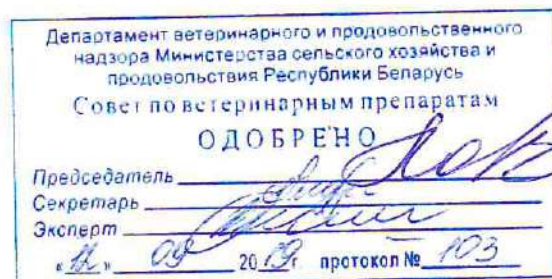 Департамент ветеринарного и продовольственного
надзора Министерства сельского хозяйства и
продовольствия Республики Беларусь
Совет по ветеринарным препаратам
ОДОБРЕНО
Председатель
Секретарь
Эксперт
« 12 » 09 20 19г. протокол № 103